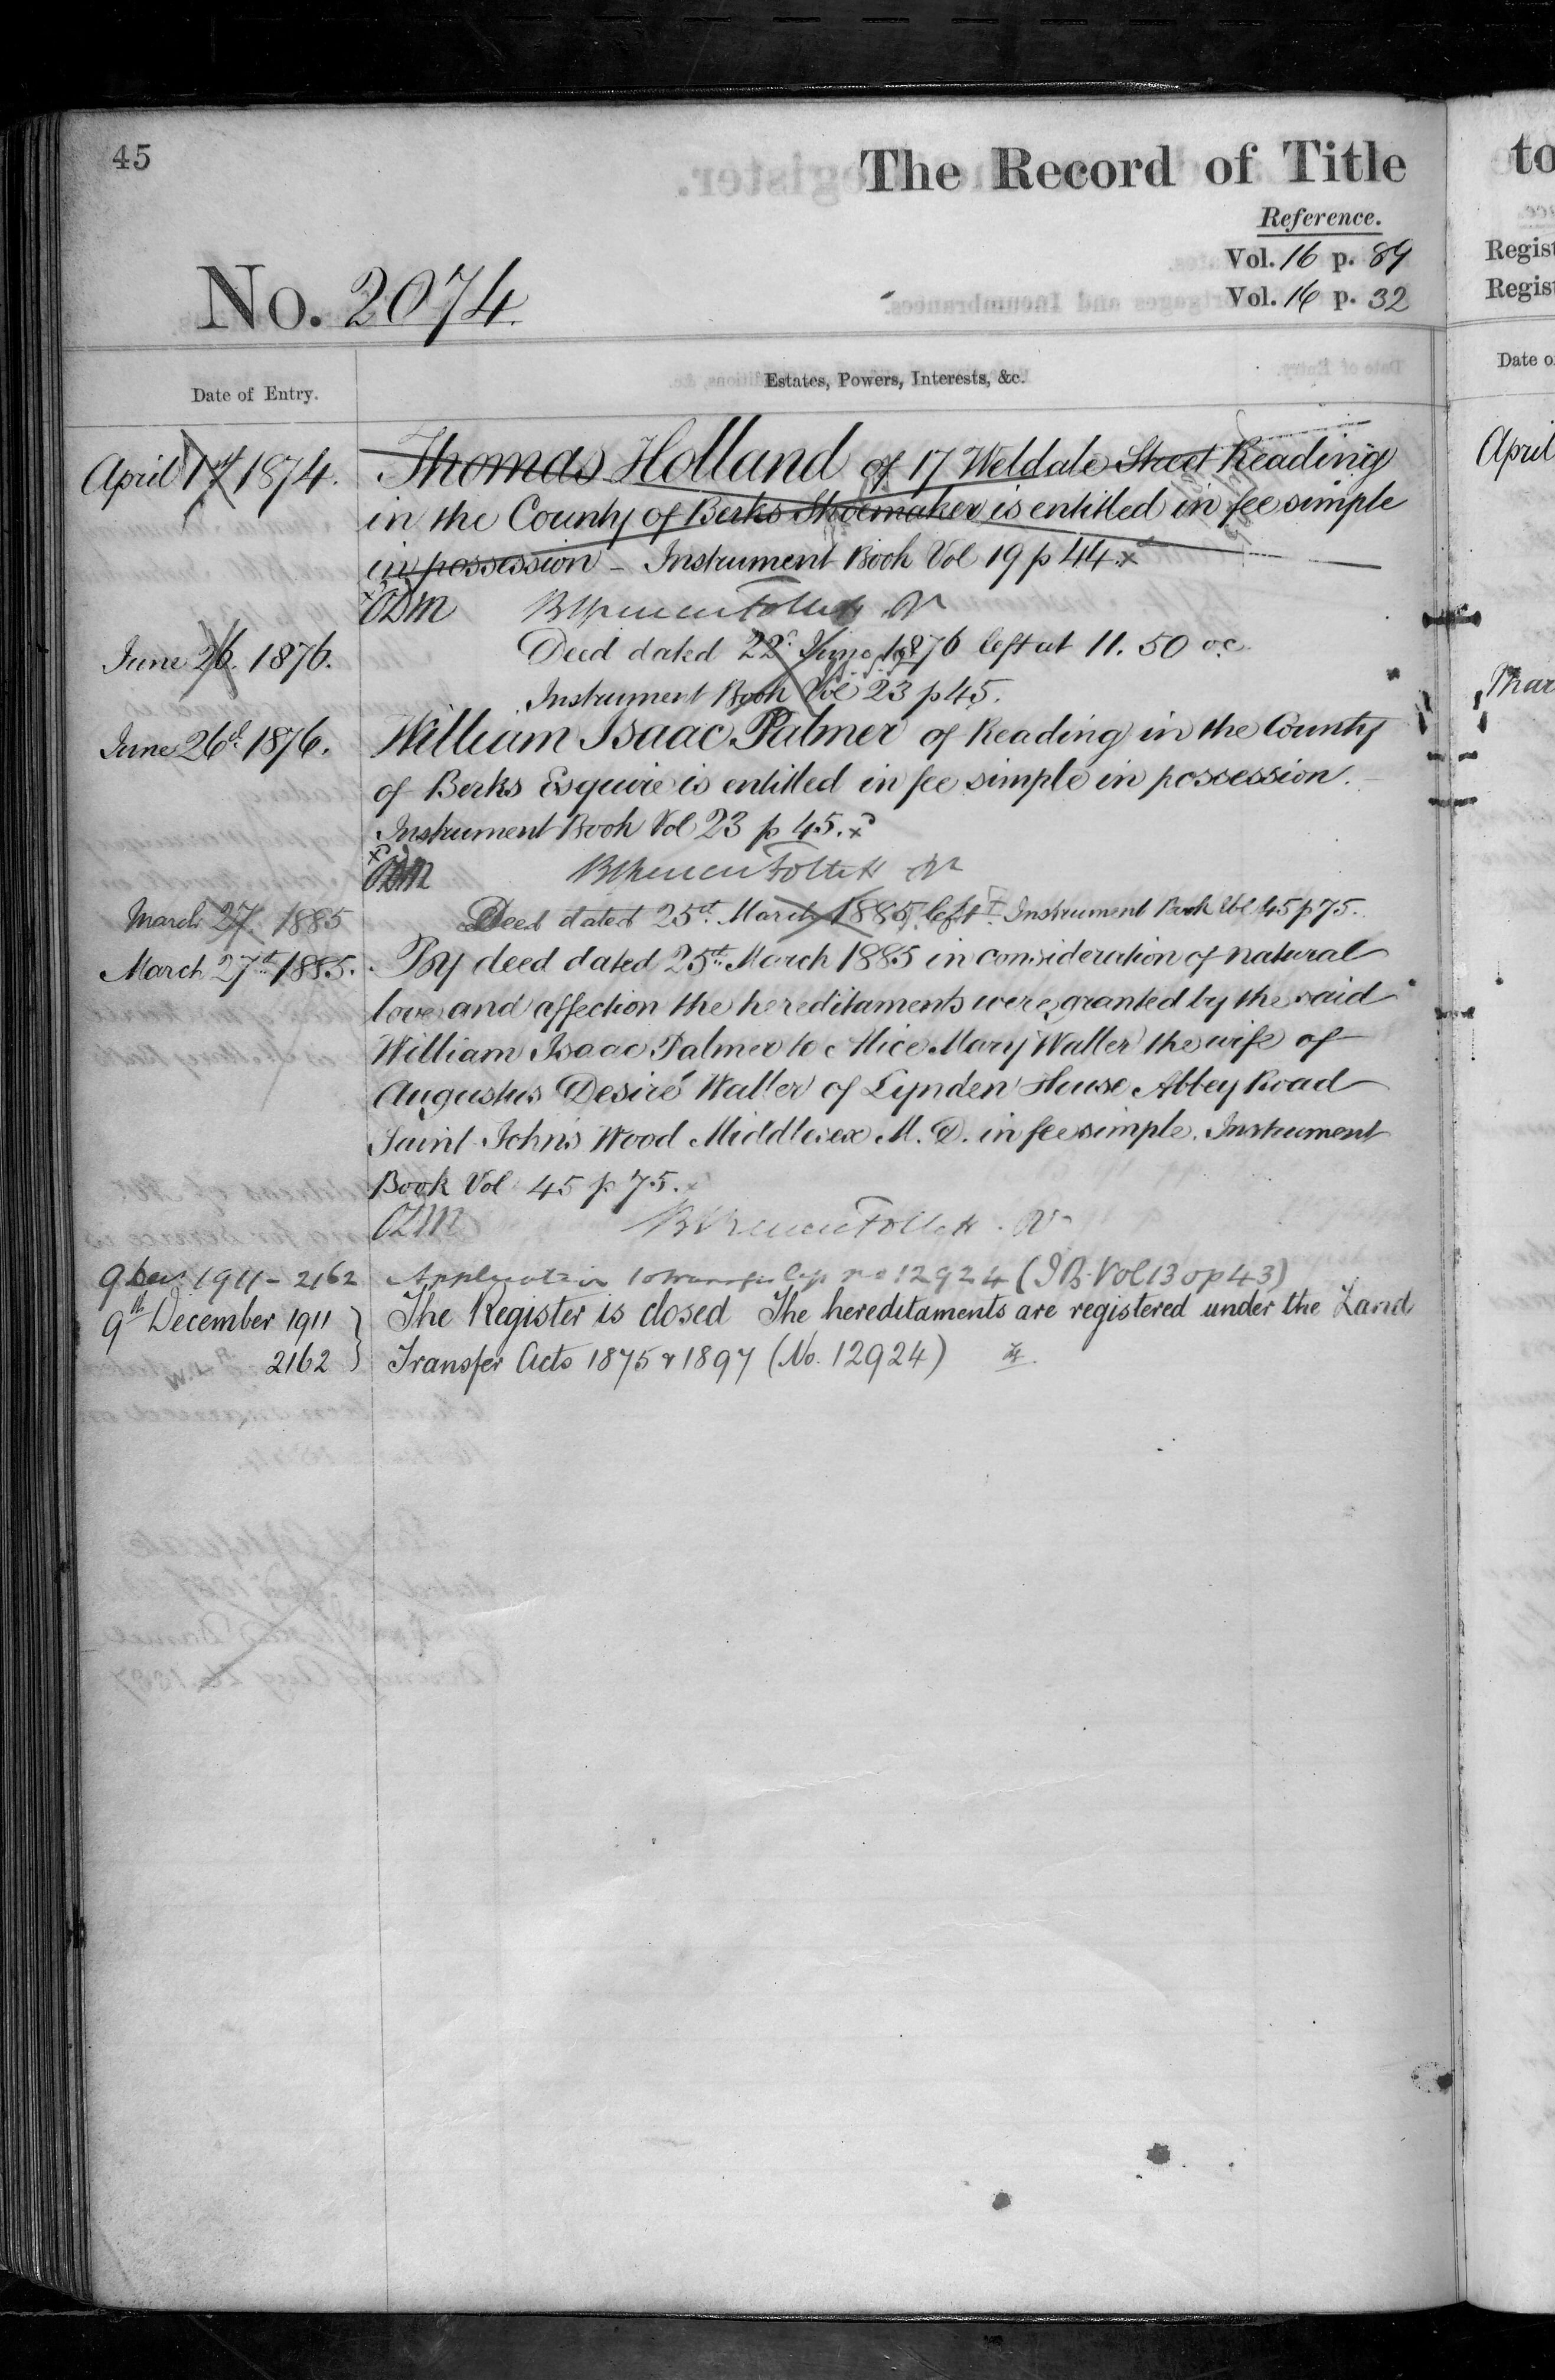 45
The Record of Title
Reference.
Vol. 16 p. 84
Vol. 16 p. 32
No. 2074
Date of Entry.
Estates, Powers, Interests, &c.
April 1st 1874. Thomas Holland of 17 Weldale Street Reading
in the County of Berks Shoemaker is entitled in fee simple
in possession - Instrument Book Vol 19 p 44.
June 26. 1876. Deed dated 22d June 1876 left at 11. 50 oc.
Instrument Book Vol 23 p 45.
June 26th 1876. William Isaac Palmer of Reading in the County
of Berks Esquire is entitled in fee simple in possession.
Instrument Book Vol 23 p 45.
March 27. 1885 Deed dated 25th March 1885 left Instrument Book Vol 45 p 75.
March 27th 1885. By deed dated 25th March 1885 in consideration of natural
love and affection the hereditaments were granted by the said
William Isaac Palmer to Alice Mary Waller the wife of
Augustus Desiré Waller of Lynden House Abbey Road
Saint Johns Wood Middlesex M. D. in fee simple. Instrument
Book Vol 45 p 75.
9 Dec 1911 - 2162 Application to transfer no 12924 (I B. Vol 130 p 43)
9th December 1911 The Register is closed The hereditaments are registered under the Land
2162 Transfer Acts 1875 & 1897 (No. 12924)
to
Regist
Regist
Date o
April
Mar